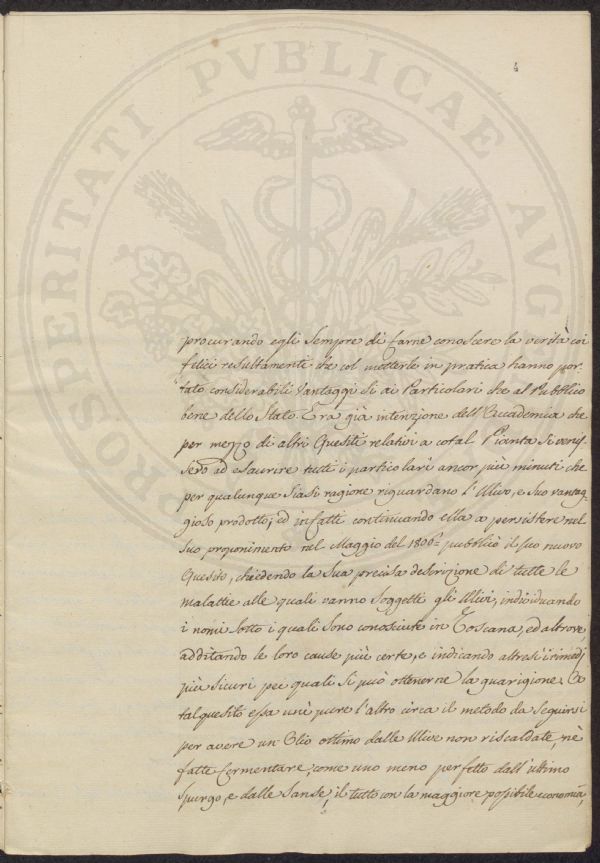 4
PROSPERITATI PVBLICAE AVG
procurando egli sempre di farne conoscere la verità coi
felici resultamenti che col metterle in pratica hanno por-
tato considerabili Vantaggi sì ai Particolari che al Pubblico
bene dello Stato. Era già intenzione dell'Accademia che
per mezzo di altri Quesiti relativi a cotal Pianta si venis
sero ad esaurire tutti i particolari ancor più minuti che
per qualunque siasi ragione riguardano l'Ulivo, e suo vantag-
gioso prodotto; ed infatti continuando ella a persistere nel
suo proponimento nel Maggio del 1806 pubblicò il suo nuovo
Quesito, chiedendo la sua precisa descrizione di tutte le
malattie alle quali vanno soggetti gli Ulivi, individuando
i nomi sotto i quali sono conosciute in Toscana, ed altrove,
additando le loro cause più certe, e indicando altresì i rimedj
più sicuri pei quali si può ottenerne la guarigione. A
tal quesito essa unì pure l'altro circa il metodo da seguirsi
per avere un Olio ottimo dalle Ulive non riscaldate, nè
fatte fermentare, come uno meno perfetto dall'ultimo
spurgo, e dalle Sanse, il tutto con la maggiore possibile economia,